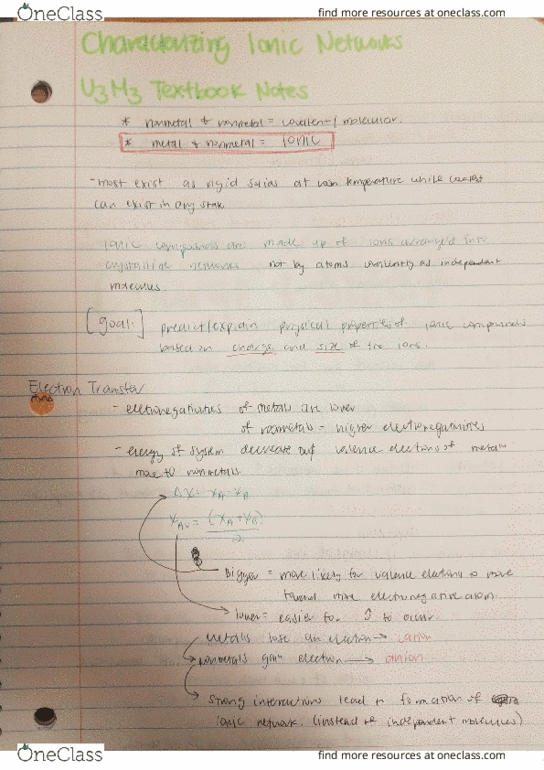 OneClass
find more resources at oneclass.com
Characterizing Ionic Networks
U3M3 Textbook Notes
* nonmetal + nonmetal = covalent / molecular.
* metal + nonmetal = IONIC
- most exist as rigid solids at room temperature while covalent
can exist in any state
Ionic compounds are made up of ions arranged into
crystalline networks not by atoms covalently as independent
molecules.
[goal:] predict/explain physical properties of ionic compounds
based on charge and size of the ions.
Electron Transfer
- electronegativities of metals are lower
of nonmetals = higher electronegativities
- energy of system decrease as valence electrons of metals
move to nonmetals
ΔX = XA - XB
XAv = (XA + XB)
2
Bigger = more likely for valence electrons to move
toward more electronegative atom.
lower = easier for to occur.
metals lose an electron → cation
nonmetals gain electron → anion
strong interactions lead to formation of
ionic network. (instead of independent molecules)
OneClass
find more resources at oneclass.com